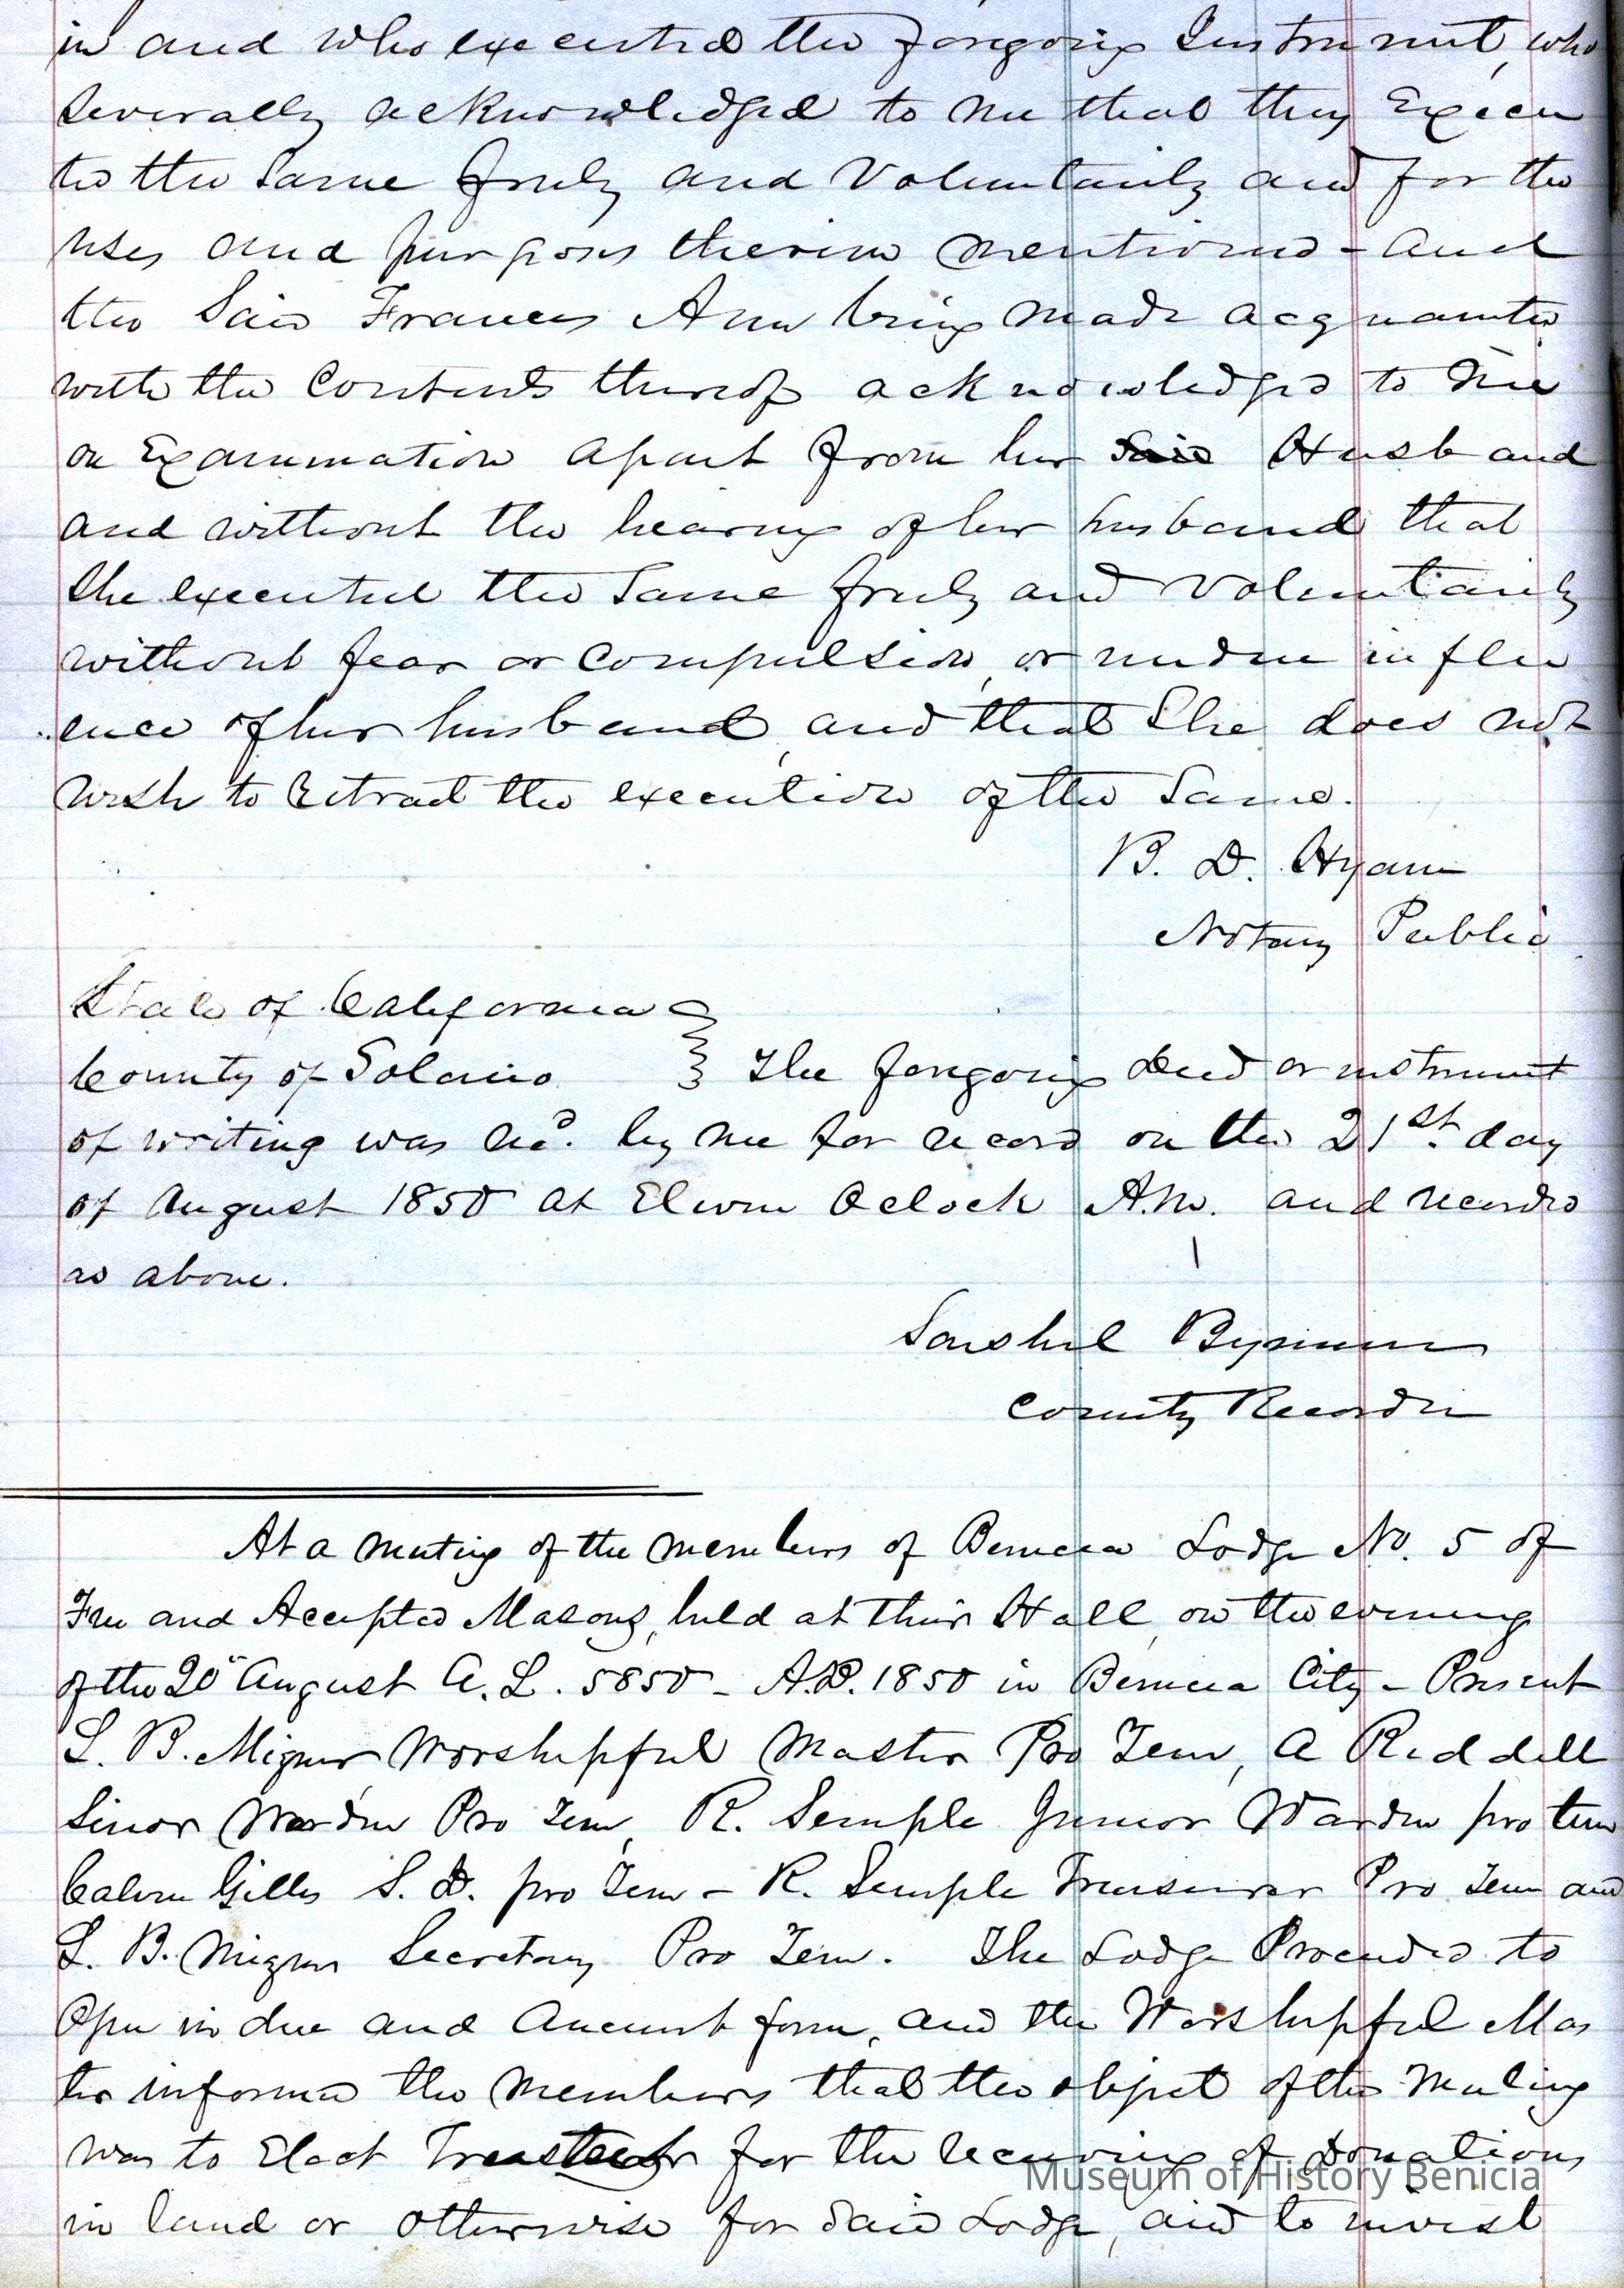 in and who executed the foregoing Instrument, who
severally acknowledged to me that they Execu
ted the Same freely and Voluntarily and for the
uses and purposes therein mentioned - and
the Said Frances Ann being made acquainted
with the Contents thereof acknowledged to me
on Examination apart from her Said Husband
and without the hearing of her husband that
She executed the Same freely and Voluntarily
without fear or Compulsion, or undue influ
ence of her husband, and that She does not
wish to retract the execution of the Same.
B. D. Hyam
Notary Public
State of California
County of Solano } The foregoing deed or instrument
of writing was recd. by me for record on the 21st. day
of August 1850 at Eleven Oclock A.M. and recorded
as above.
Bynum
County Recorder
At a meeting of the members of Benicia Lodge No. 5 of
Free and Accepted Masons, held at their Hall, on the evening
of the 20" August A. L. 5850 - A.D. 1850 in Benicia City - Present
L. B. Mizner Worshipful Master Pro Tem, A Riddell
Senior Warden Pro Tem, R. Semple Junior Warden pro tem
Calvin Gilles S. D. pro Tem - R. Semple Treasurer Pro Tem and
L. B. Mizner Secretary Pro Tem. The Lodge Proceeded to
Open in due and Ancient form, and the Worshipful Mas
ter informed the Members that the object of the Meeting
was to Elect Trustees for the receiving of Donations
in land or otherwise for Said Lodge, and to invest
Museum of History Benicia